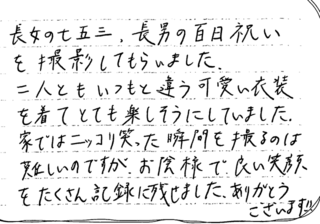 長女の七五三、長男の百日祝い
を撮影してもらいました。
二人ともいつもと違う可愛い衣装
を着てとても楽しそうにしていました。
家ではニッコリ笑った瞬間を撮るのは
難しいのですが、お陰様で良い笑顔
をたくさん記録に残せました。ありがとう
ございます!!